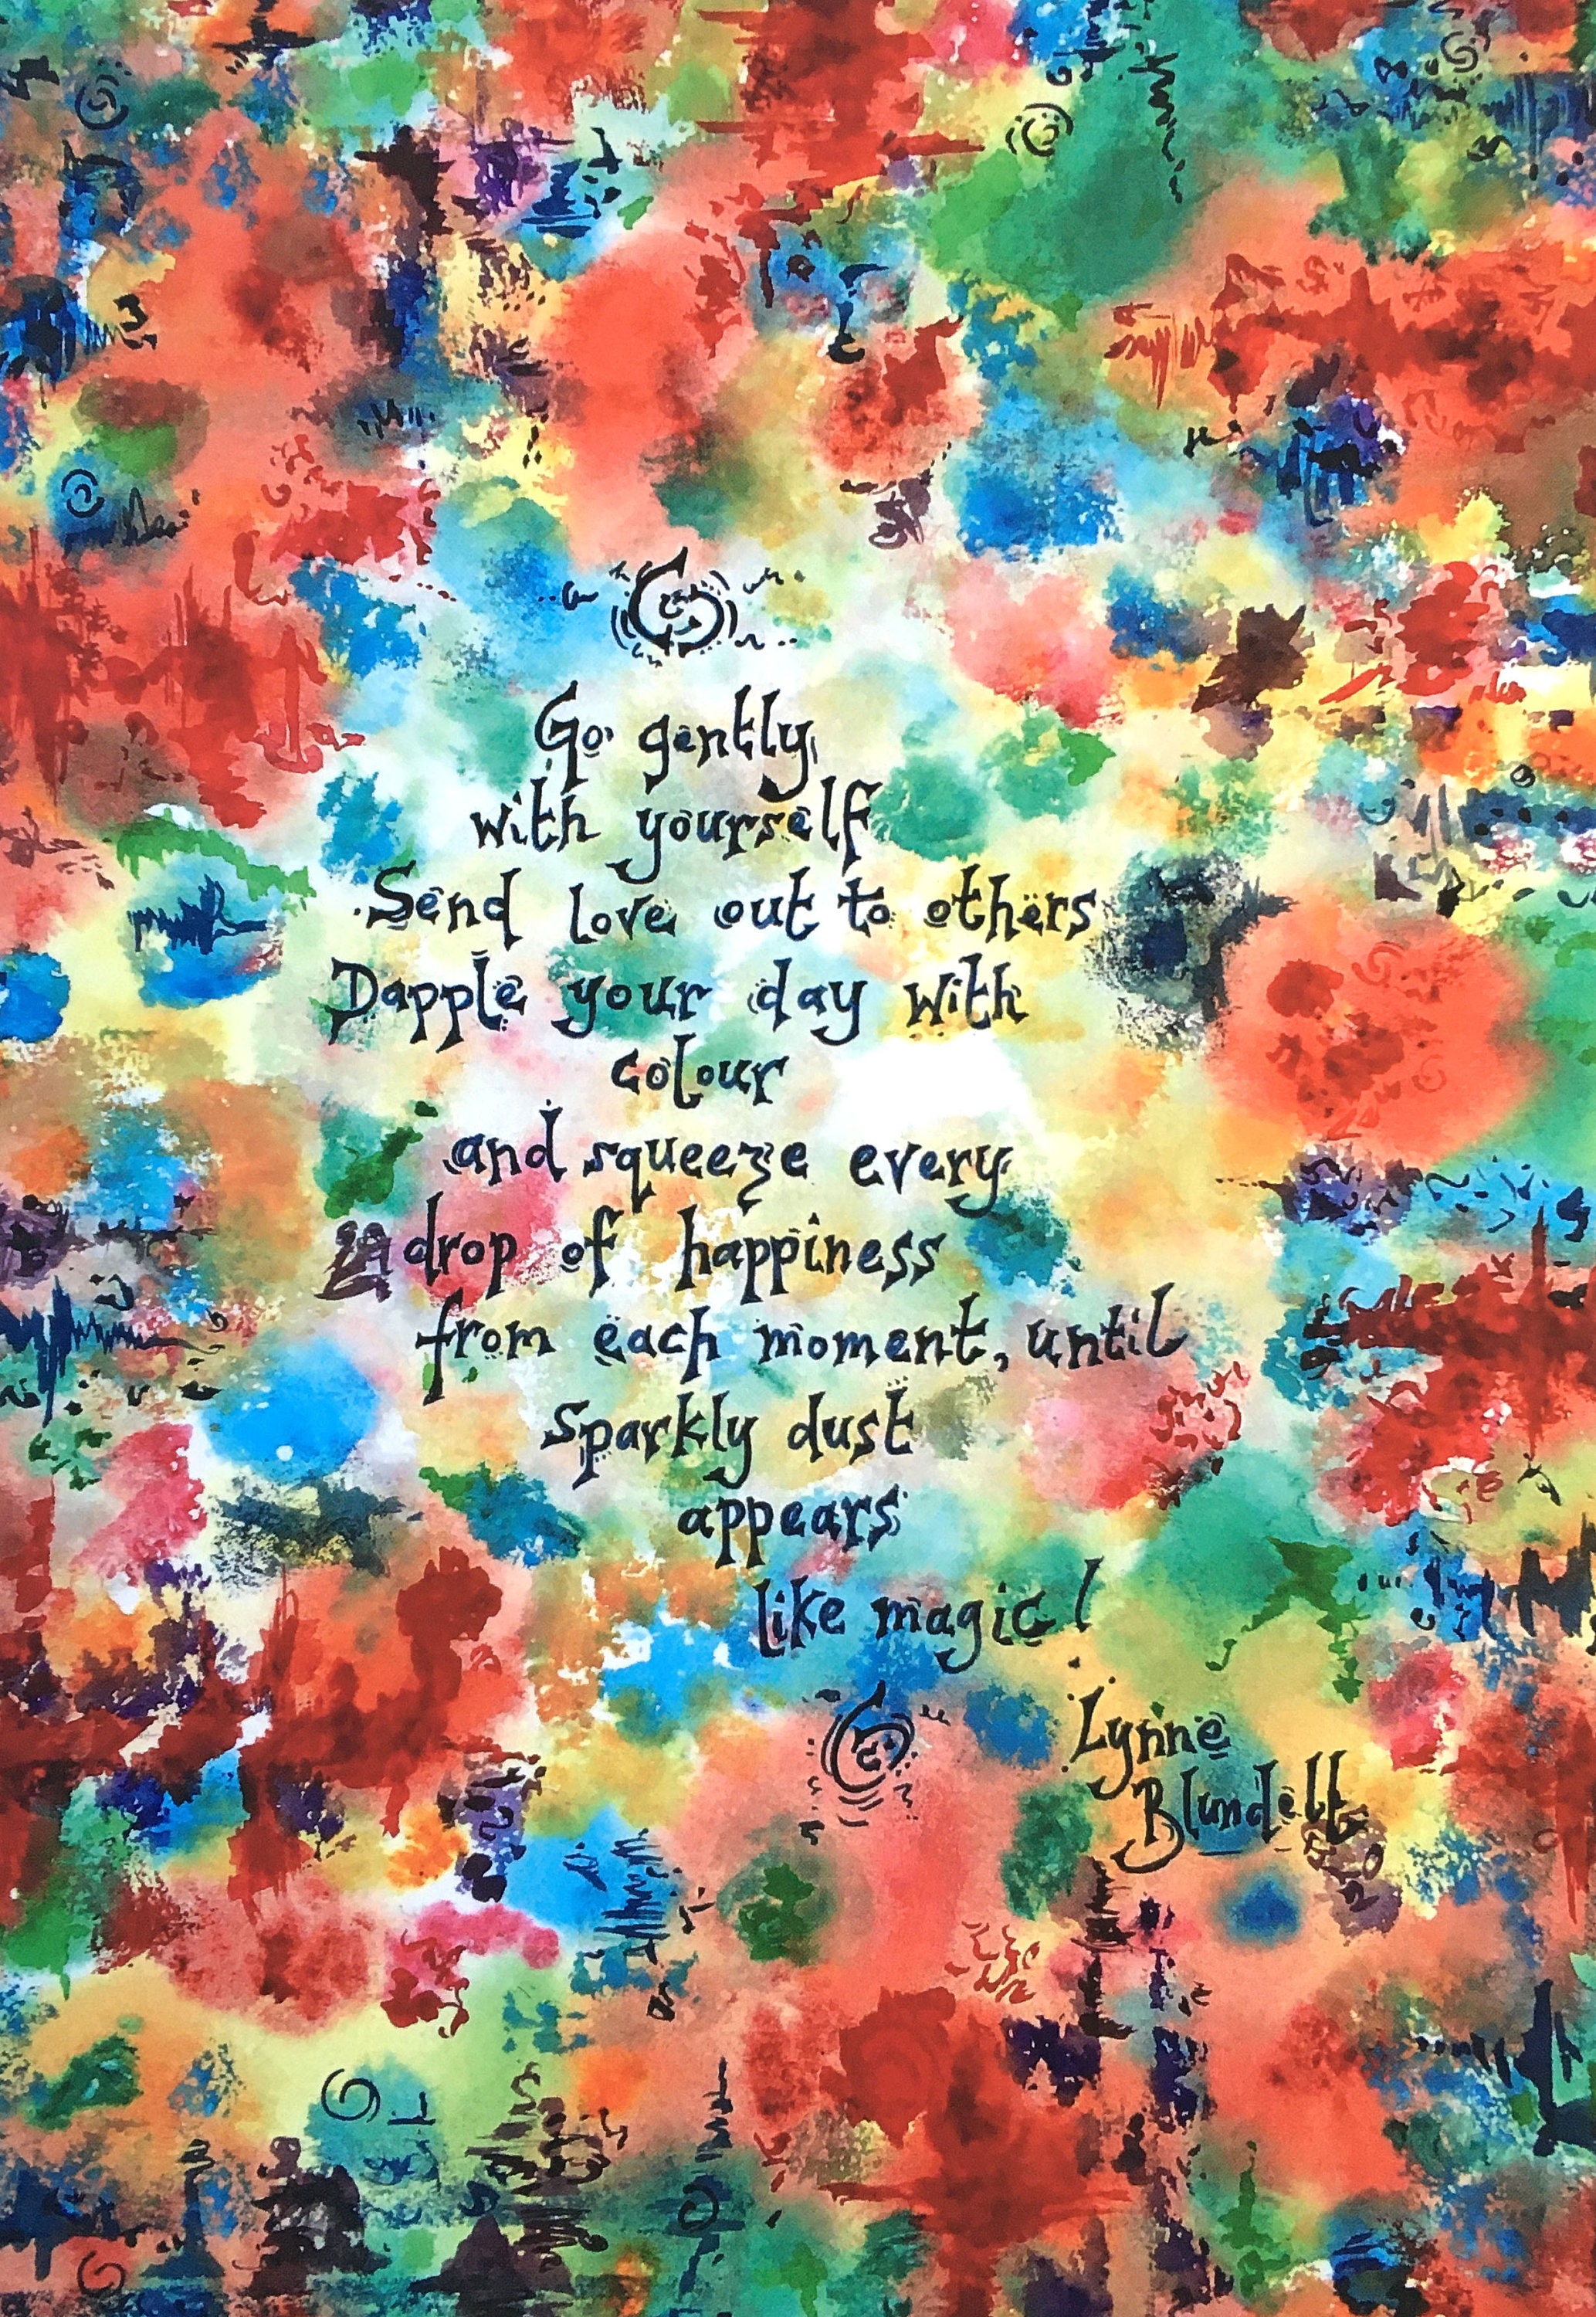 Go gently
with yourself
Send love out to others
Dapple your day with
colour
and squeeze every
drop of happiness
from each moment, until
sparkly dust
appears
like magic!
Lynne
Blundell